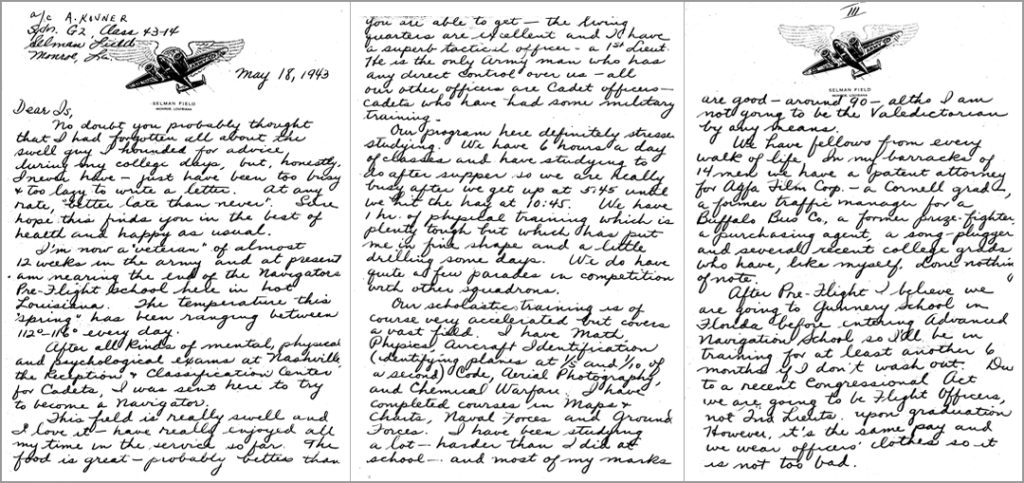 a/c A. KOVNER
Sqdn. G2, Class 43-14
Selman Field
Monroe, La.
SELMAN FIELD
MONROE, LOUISIANA
May 18, 1943
Dear Is,
No doubt you probably thought
that I had forgotten all about the
swell guy I hounded for advice
during my college days, but, honestly,
I never have - just have been too busy
& too lazy to write a letter. At any
rate, "better late than never". Sure
hope this finds you in the best of
health and happy as usual.
I'm now a "veteran" of almost
12 weeks in the army and at present
am nearing the end of the Navigators
Pre-Flight School here in hot
Louisiana. The temperature this
"spring" has been ranging between
112°-116° every day.
After all kinds of mental, physical
and psychological exams at Nashville,
the Reception & Classification Center
for Cadets, I was sent here to try
to become a Navigator.
This field is really swell and
I love it - have really enjoyed all
my time in the service so far. The
food is great - probably better than
you are able to get - the living
quarters are excellent and I have
a superb tactical officer - a 1st Lieut.
He is the only Army man who has
any direct control over us - all
our other officers are Cadet officers -
cadets who have had some military
training.
Our program here definitely stresses
studying. We have 6 hours a day
of classes and have studying to
do after supper so we are really
busy after we get up at 5:45 until
we hit the hay at 10:45. We have
1 hr. of physical training which is
plenty tough but which has put
me in fine shape and a little
drilling some days. We do have
quite a few parades in competition
with other squadrons.
Our scholastic training is of
course very accelerated but covers
a vast field. I have Math,
Physics, Aircraft Identification
(identifying planes at 1/5 and 1/10 of
a second) Code, Aerial Photography,
and Chemical Warfare. I have
completed courses in Maps &
Charts, Naval Forces and Ground
Forces. I have been studying
a lot - harder than I did at
school - and most of my marks
III
SELMAN FIELD
MONROE, LOUISIANA
are good - around 90 - altho I am
not going to be the Valedictorian
by any means.
We have fellows from every
walk of life. In my barracks of
14 men we have a patent attorney
for Agfa Film Corp. - a Cornell grad -,
a former traffic manager for a
Buffalo Bus Co., a former prize-fighter,
a purchasing agent, a song-plugger
and several recent college grads
who have, like myself, done nothin
of note.
After Pre-Flight I believe we
are going to Gunnery School in
Florida before entering Advanced
Navigation School so I'll be in
training for at least another 6
months if I don't wash out. Du
to a recent Congressional Act
we are going to be Flight Officers,
not 2nd Lieuts. upon graduation
However, it's the same pay and
we wear officers' clothes so it
is not too bad.